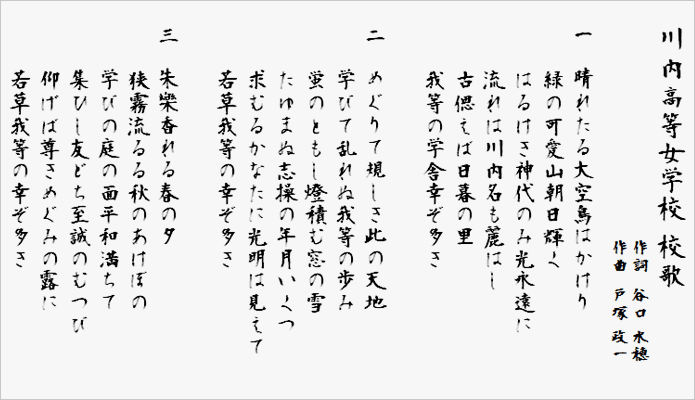 川内高等女学校 校歌
作詞 谷口 水穂
作曲 戸塚 政一
一
晴れたる大空鳥はかけり
緑の可愛山朝日輝く
はるけき神代のみ光永遠に
流れは川内名も麗はし
古偲えば日暮の里
我等の学舎幸ぞ多き
二
めぐりて規しき此の天地
学びて乱れぬ我等の歩み
蛍のともし燈積む窓の雪
たゆまぬ志操の年月いくつ
求むるかなたに光明は見えて
若草我等の幸ぞ多き
三
朱欒香れる春の夕
狭霧流るる秋のあけぼの
学びの庭の面平和満ちて
集ひし友どち至誠のむつび
仰げば尊きめぐみの露に
若草我等の幸ぞ多き